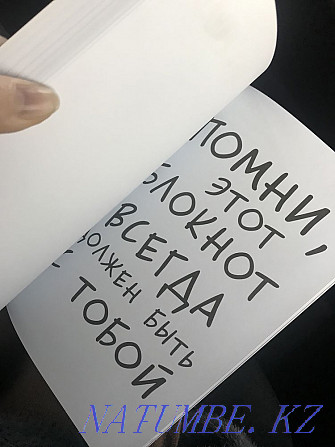 ПОМНИ,
ЭТОТ
БЛОКНОТ
ВСЕГДА
ДОЛЖЕН БЫТЬ
С
ТОБОЙ
NATUMBE.KZ